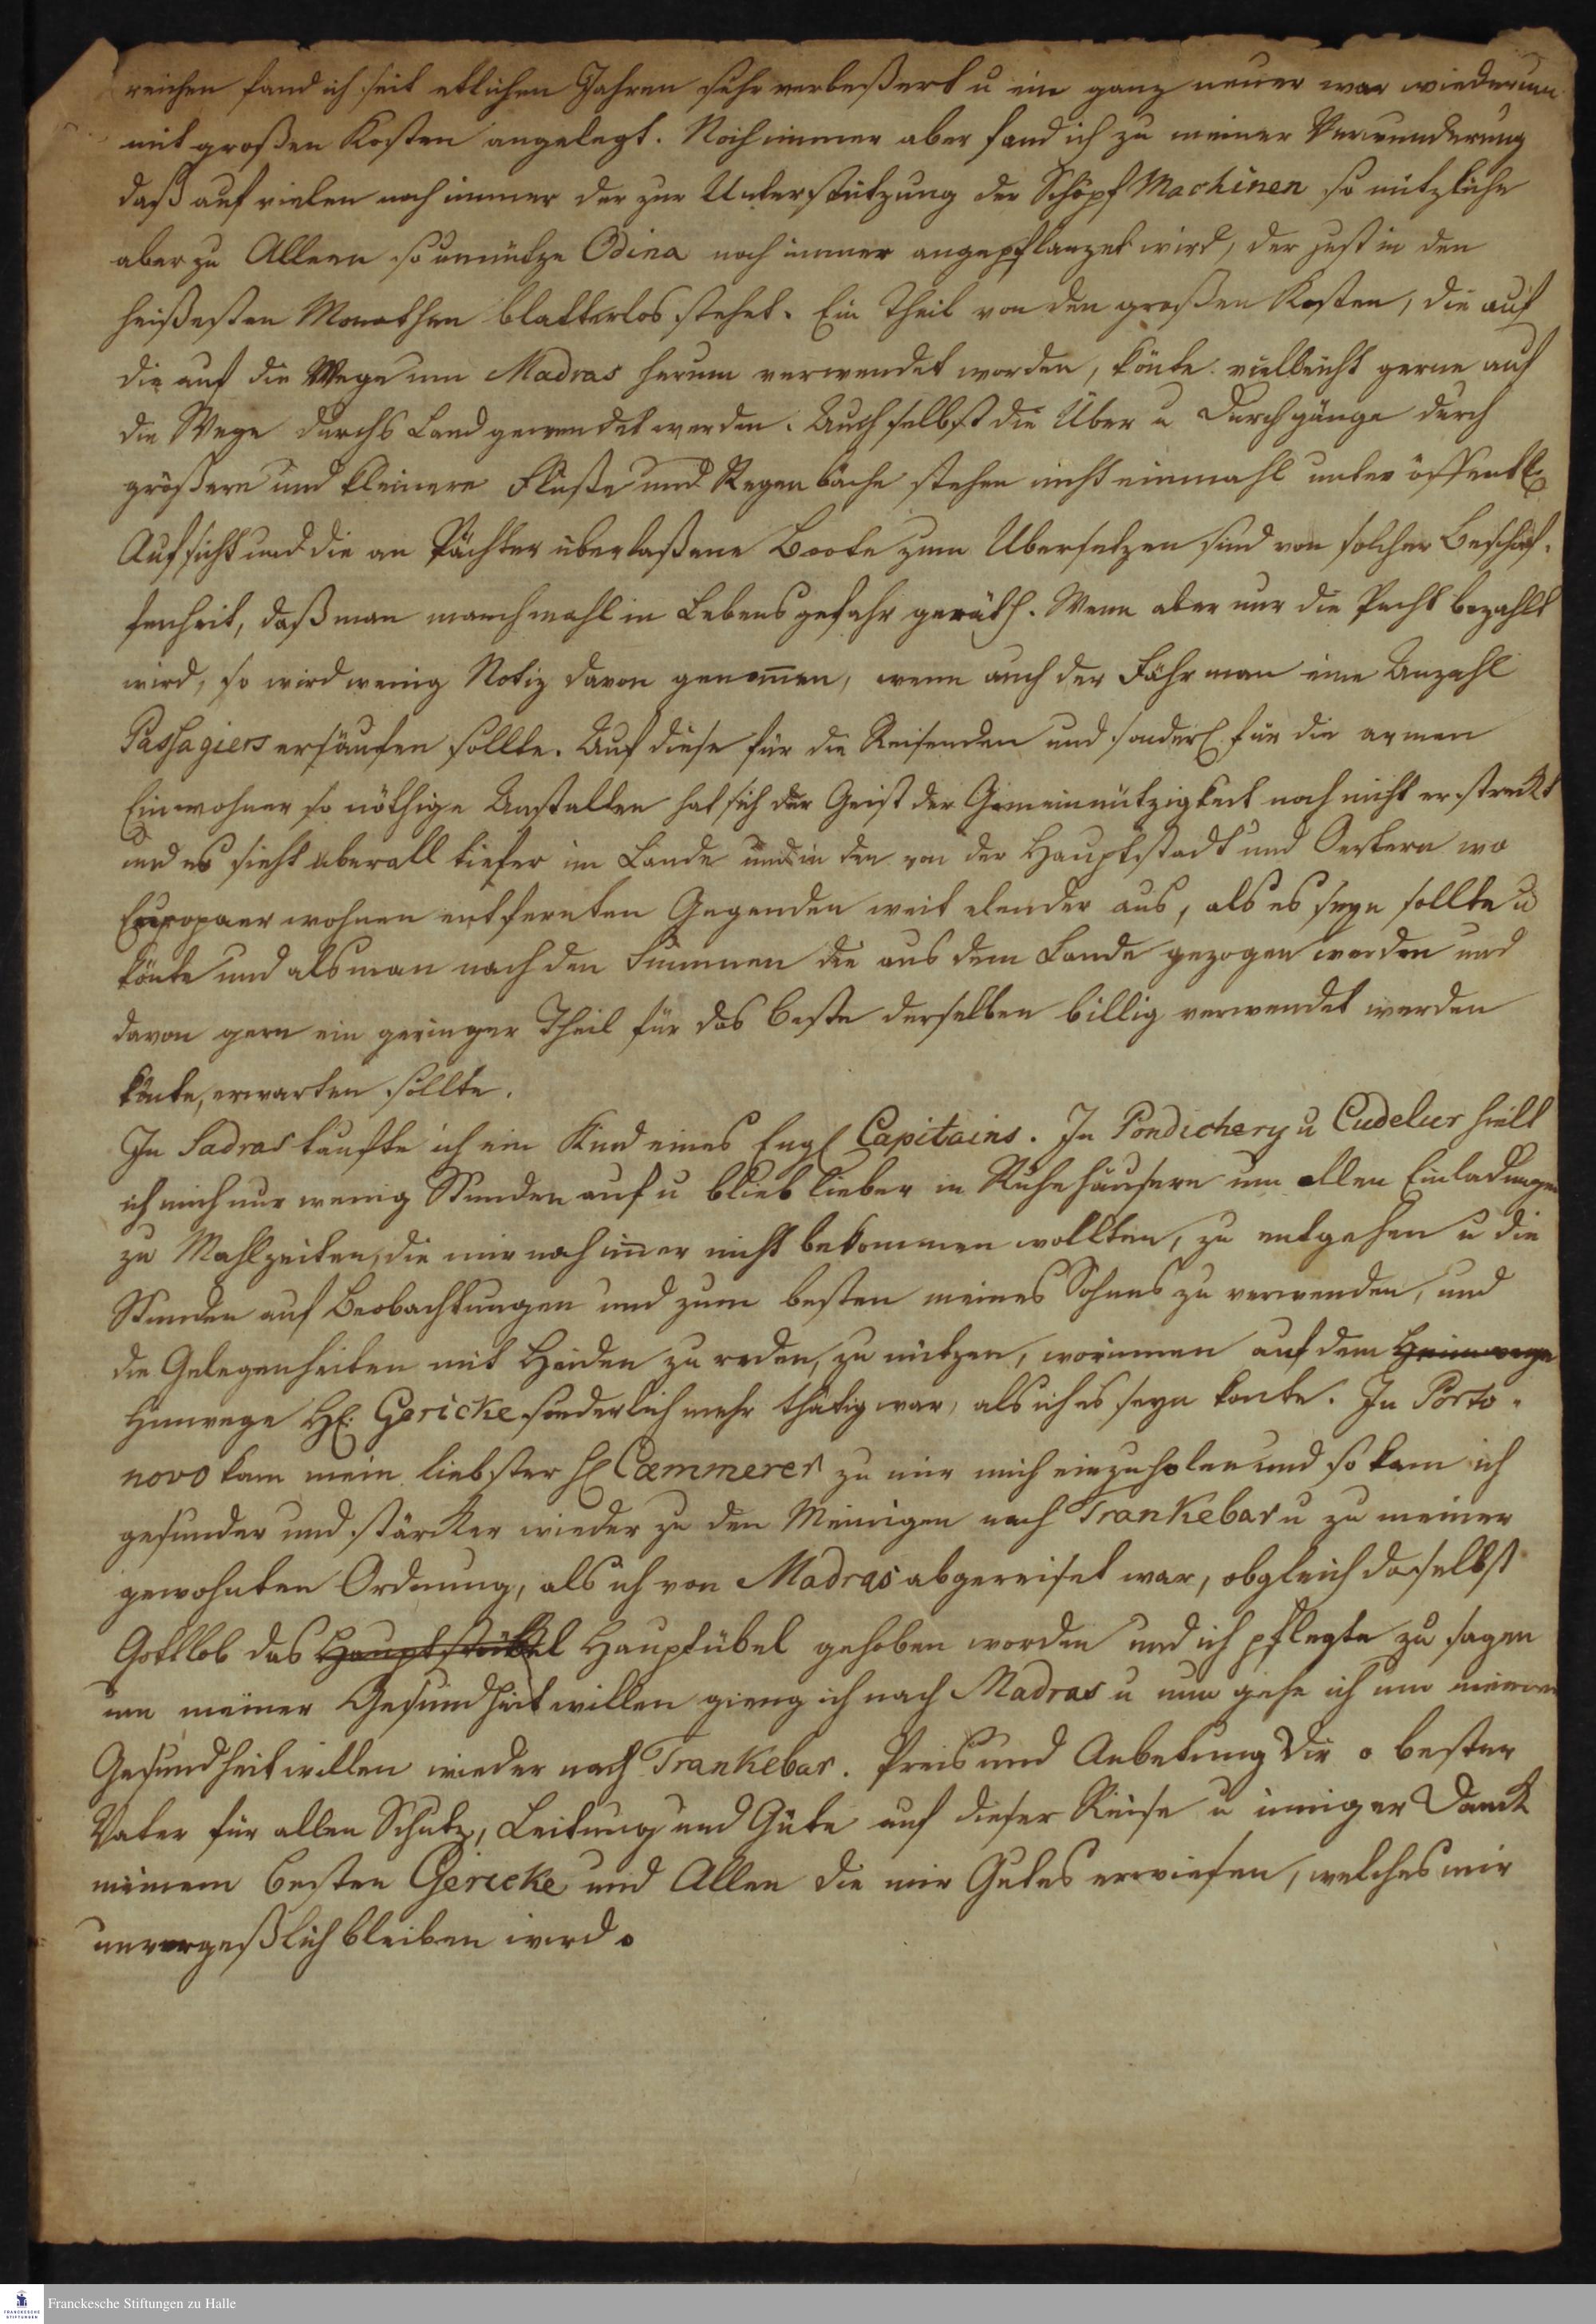 reichen fand ich seit etlichen Jahren sehr verbeßert u ein ganz neuer war wiederum
mit großen Kosten angelegt. Noch immer aber fand ich zu meiner Verwunderung
daß auf vielen noch immer der zur Unterstützung der Schöpf Machinen so nützliche
aber zu Alleen so unnütze Odina noch immer angepflanzet wird, der just in den
heißesten Monathen blatterlos stehet. Ein Theil von den großen Kosten, die auf
die auf die Wege um Madras herum verwendet worden, könte vielleicht gerne auf
die Wege durchs Land gewendet werden. Auch selbst die Über u Durchgänge durch
größere und kleinere Flüße und Regenbäche stehen nicht einmahl unter öffentl
Aufsicht und die an Pächter überlaßene Boote zum Übersetzen sind von solcher Beschaf-
fenheit, daß man manchmahl in Lebensgefahr geräth. Wenn aber nur die Pacht bezahlt
wird, so wird wenig Notiz davon genom̅en, wenn auch der Fährman eine Anzahl
Passagiers ersäufen sollte. Auf diese für die Reisenden und sonderl. für die armen
Einwohner so nöthige Anstalten hat sich der Geist der Gemeinnützigkeit noch nicht erstreckt
und es sieht überall tiefer im Lande und in den von der Hauptstadt und Oertern wo
Europaer wohnen entfernten Gegenden weit elender aus, als es seyn sollte u
könte und als man nach den Summen die aus dem Lande gezogen werden und
davon gern ein geringer Theil für das beste derselben billig verwendet werden
könte, erwarten sollte.
In Sadras taufte ich ein Kind eines Engl Capitains. In Pondichery u Cudelur hielt
ich mich nur wenig Stunden auf u blieb lieber in Ruhehäusern um allen Einladungen
zu Mahlzeiten, die mir noch im̅er nicht bekommen wollten, zu entgehen u die
Stunden auf Beobachtungen und zum besten meines Sohnes zu verwenden, und
die Gelegenheiten mit Heiden zu reden, zu nützen, worinnen auf dem Heimwege
Hinwege H. Gericke sonderlich mehr thätig war, als ich es seyn konte. In Porto-
novo kam mein liebster H Cæmmerer zu mir mich einzuholen und so kam ich
gesunder und stärcker wieder zu den Meinigen nach Trankebar u zu meiner
gewohnten Ordnung, als ich von Madras abgereiset war, obgleich daselbst
Gottlob das Hauptübel gehoben worden und ich pflegte zu sagen
um meiner Gesundheit willen gieng ich nach Madras u nun gehe ich um meiner
Gesundheit willen wieder nach Trankebar. Preis und Anbetung Dir o bester
Vater für allen Schutz, Leitung und Güte auf dieser Reise u inniger Danck
meinem besten Gericke und Allen die mir Gutes erwiesen, welches mir
unvergeßlich bleiben wird.
Franckesche Stiftungen zu Halle